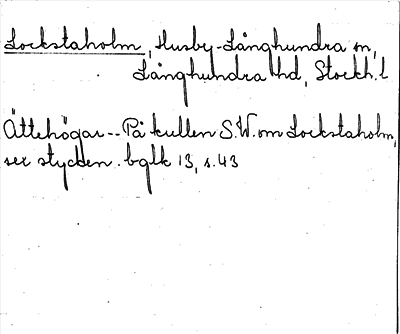 Lockstaholm, Husby-Långhundra sn,
Långhundra hd, Stockh. l
Ättehögar -- På kullen S.W. om Lockstaholm,
sex stycken. bglk 13, s. 43